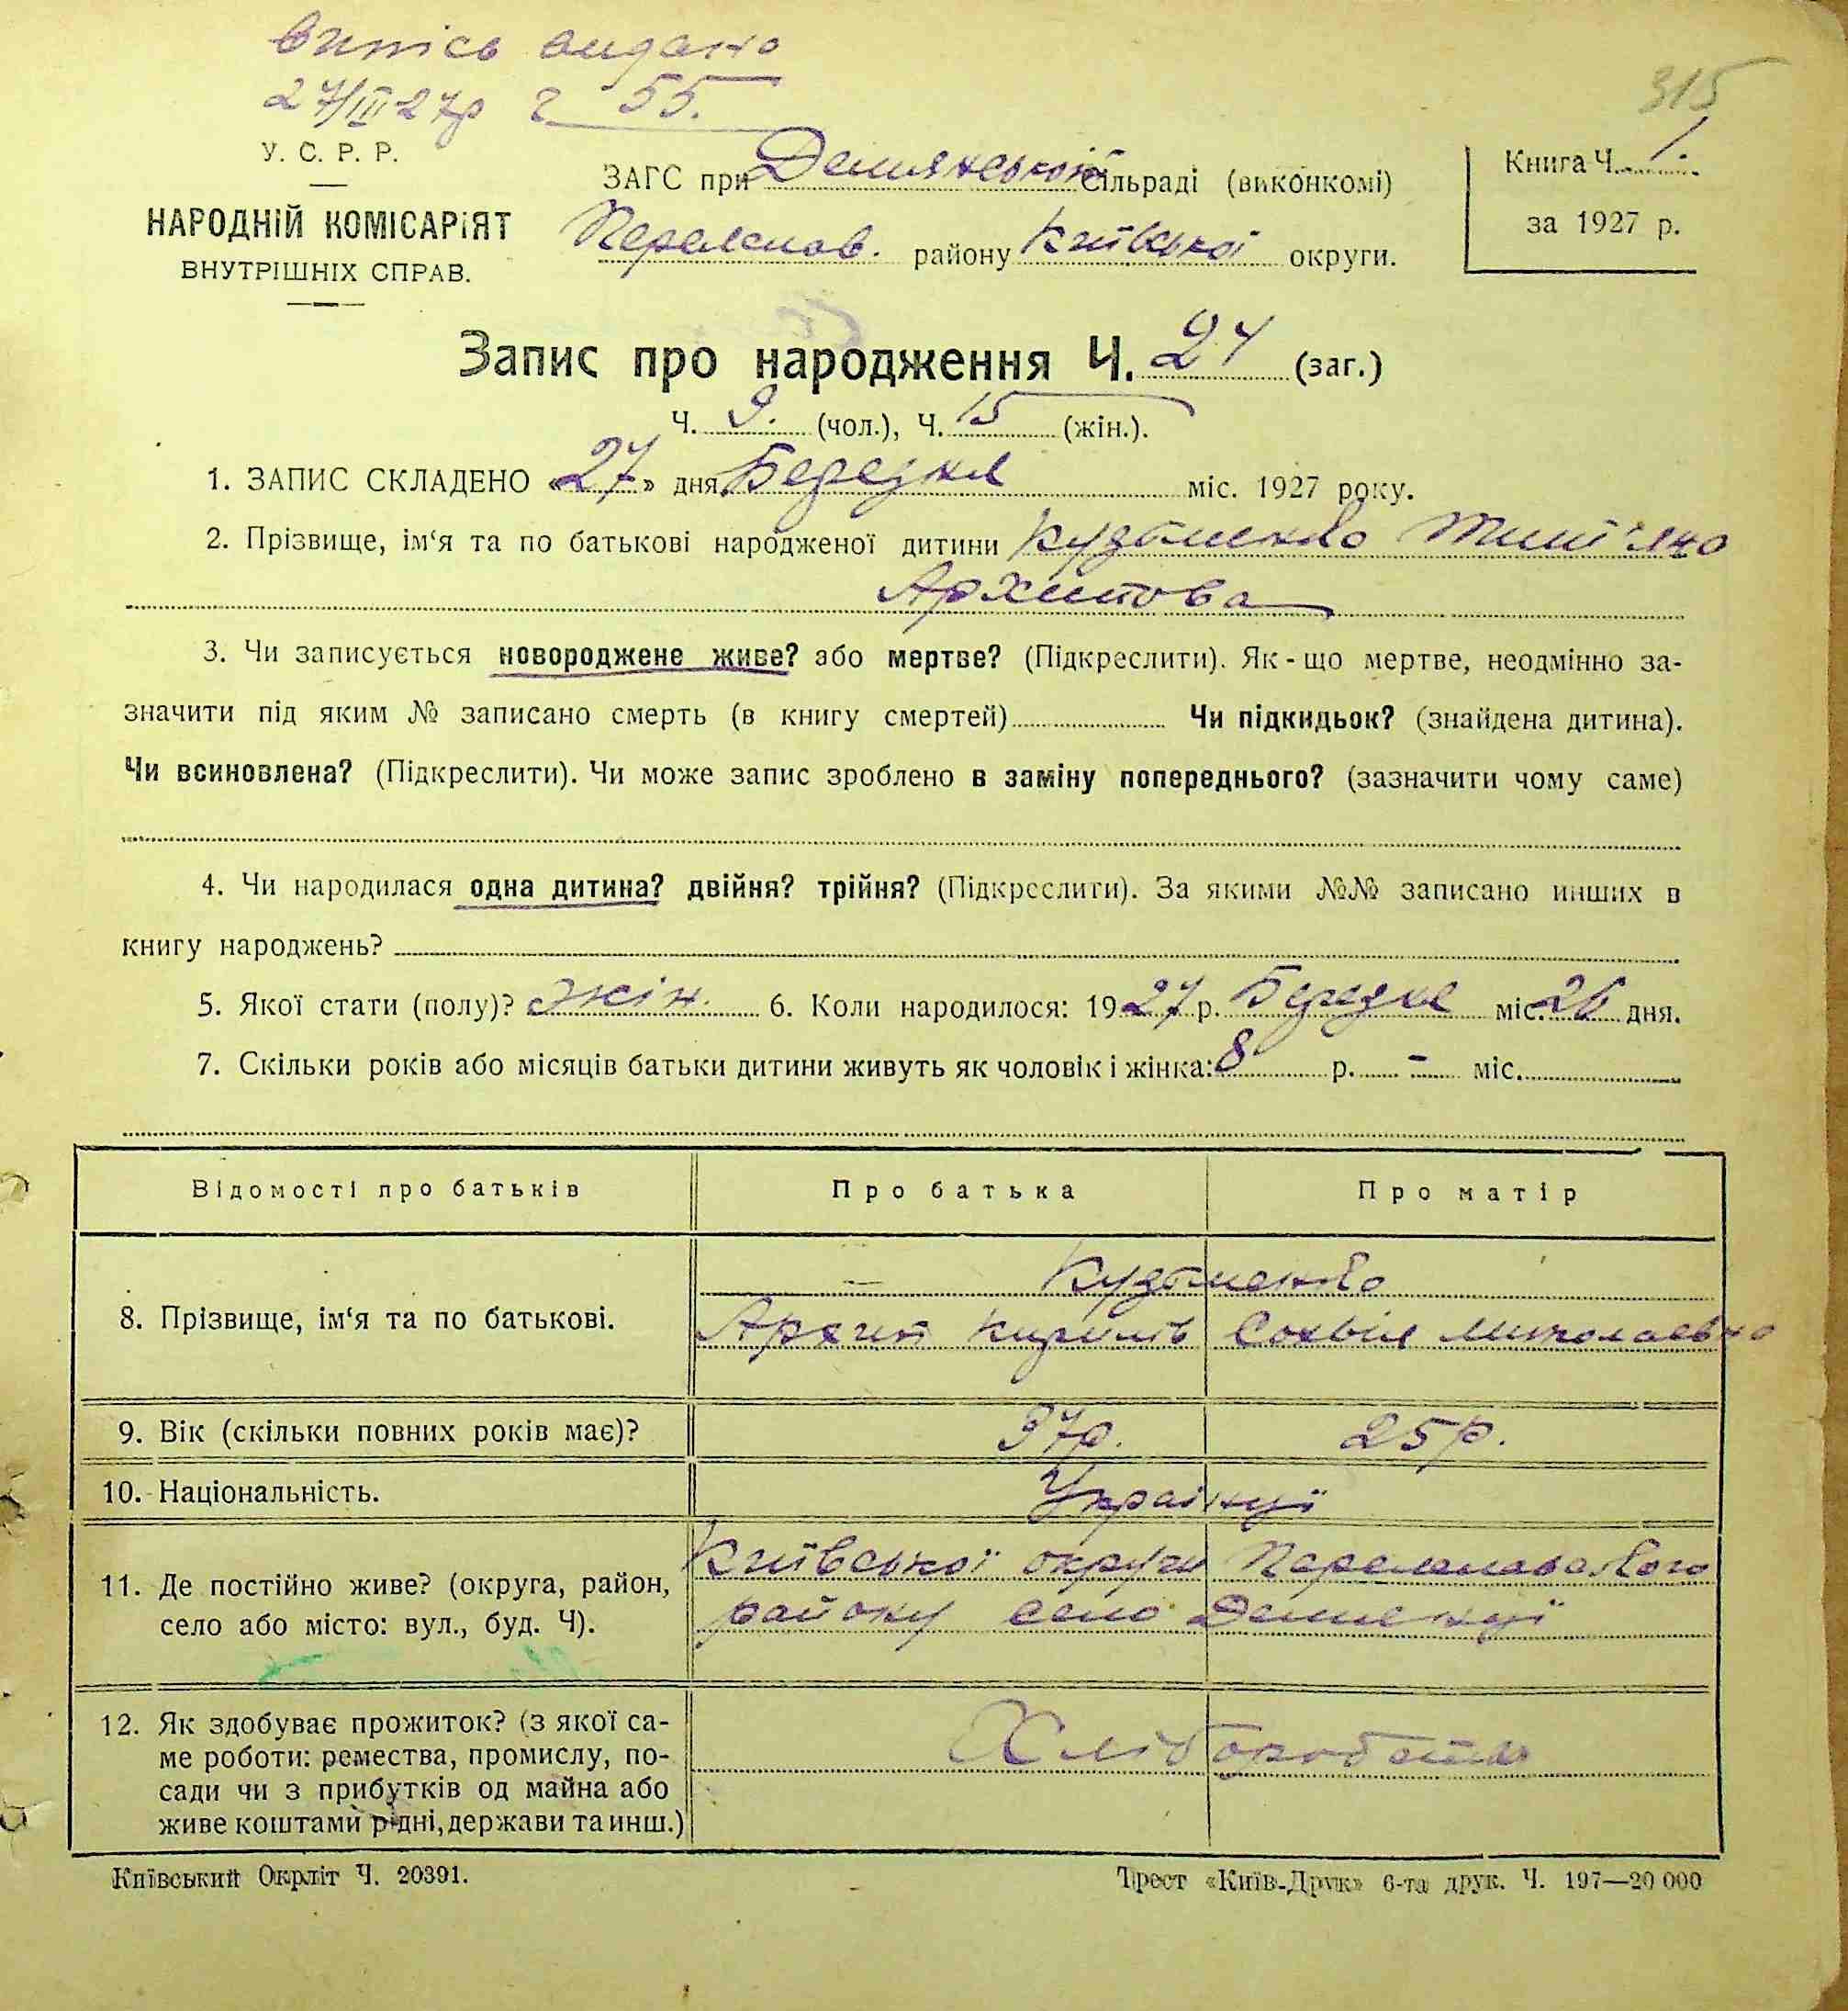 випісь видано
27/III 27р ч 55.
315
У. С. Р. Р.
НАРОДНІЙ КОМІСАРІЯТ
ВНУТРІШНІХ СПРАВ.
ЗАГС при Демянській Сільраді (виконкомі)
Переяслов. району Київської округи.
Книга Ч. 1.
за 1927 р.
Запис про народження Ч. 24 (заг.)
Ч. 9. (чол.), Ч. 15 (жін.).
1. ЗАПИС СКЛАДЕНО «27» дня Березня міс. 1927 року.
2. Прізвище, ім‘я та по батькові народженої дитини Кузьменко
Архипова
3. Чи записується новороджене живе? або мертве? (Підкреслити). Як-що мертве, неодмінно за-
значити під яким № записано смерть (в книгу смертей) Чи підкидьок? (знайдена дитина).
Чи всиновлена? (Підкреслити). Чи може запис зроблено в заміну попереднього? (зазначити чому саме)
4. Чи народилася одна дитина? двійня? трійня? (Підкреслити). За якими №№ записано инших в
книгу народжень?
5. Якої стати (полу)? жін. 6. Коли народилося: 1927 р. Березня міс. 26 дня.
7. Скільки років або місяців батьки дитини живуть як чоловік і жінка: 8 р. - міс.
Відомості про батьків Про батька Про матір
8. Прізвище, ім‘я та по батькові.
Кузьменко
Архип Кирилів Сохвія Миколаевна
9. Вік (скільки повних років має)? 37р. 25р.
10. Національність. Українці
11. Де постійно живе? (округа, район,
село або місто: вул., буд. Ч).
Київської округи Переяславського
району село Демянці
12. Як здобуває прожиток? (з якої са-
ме роботи: ремества, промислу, по-
сади чи з прибутків од майна або
живе коштами рідні, держави та инш.)
Хлібороби
Київський Окрліт Ч. 20391.
Трест «Київ-Друк» 6-та друк. Ч. 197—20 000